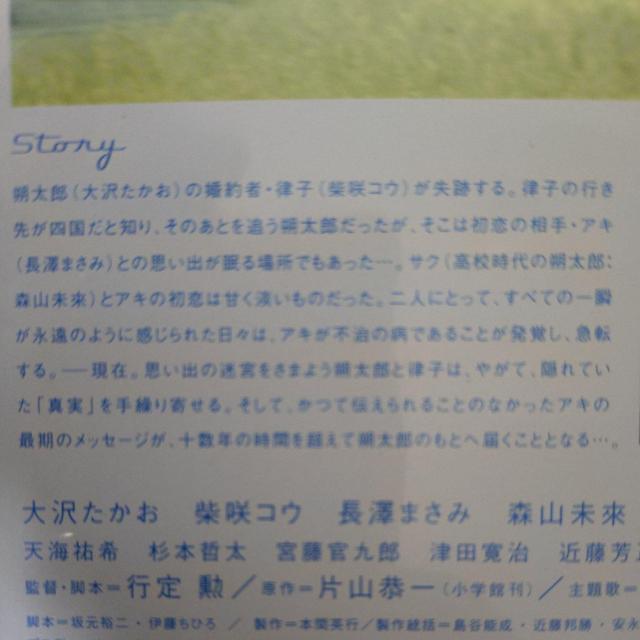 Story
朔太郎(大沢たかお)の婚約者・律子(柴咲コウ)が失踪する。律子の行き
先が四国だと知り、そのあとを追う朔太郎だったが、そこは初恋の相手・アキ
(長澤まさみ)との思い出が眠る場所でもあった…。サク(高校時代の朔太郎:
森山未來)とアキの初恋は甘く淡いものだった。二人にとって、すべての一瞬
が永遠のように感じられた日々は、アキが不治の病であることが発覚し、急転
する。──現在。思い出の迷宮をさまよう朔太郎と律子は、やがて、隠れてい
た「真実」を手繰り寄せる。そして、かつて伝えられることのなかったアキの
最期のメッセージが、十数年の時間を超えて朔太郎のもとへ届くこととなる…。
大沢たかお 柴咲コウ 長澤まさみ 森山未來
天海祐希 杉本哲太 宮藤官九郎 津田寛治 近藤芳正
監督・脚本=行定 勲/原作=片山恭一(小学館刊)/主題歌=
脚本=坂元裕二・伊藤ちひろ/製作=本間英行/製作総括=島谷能成・近藤邦勝・安永